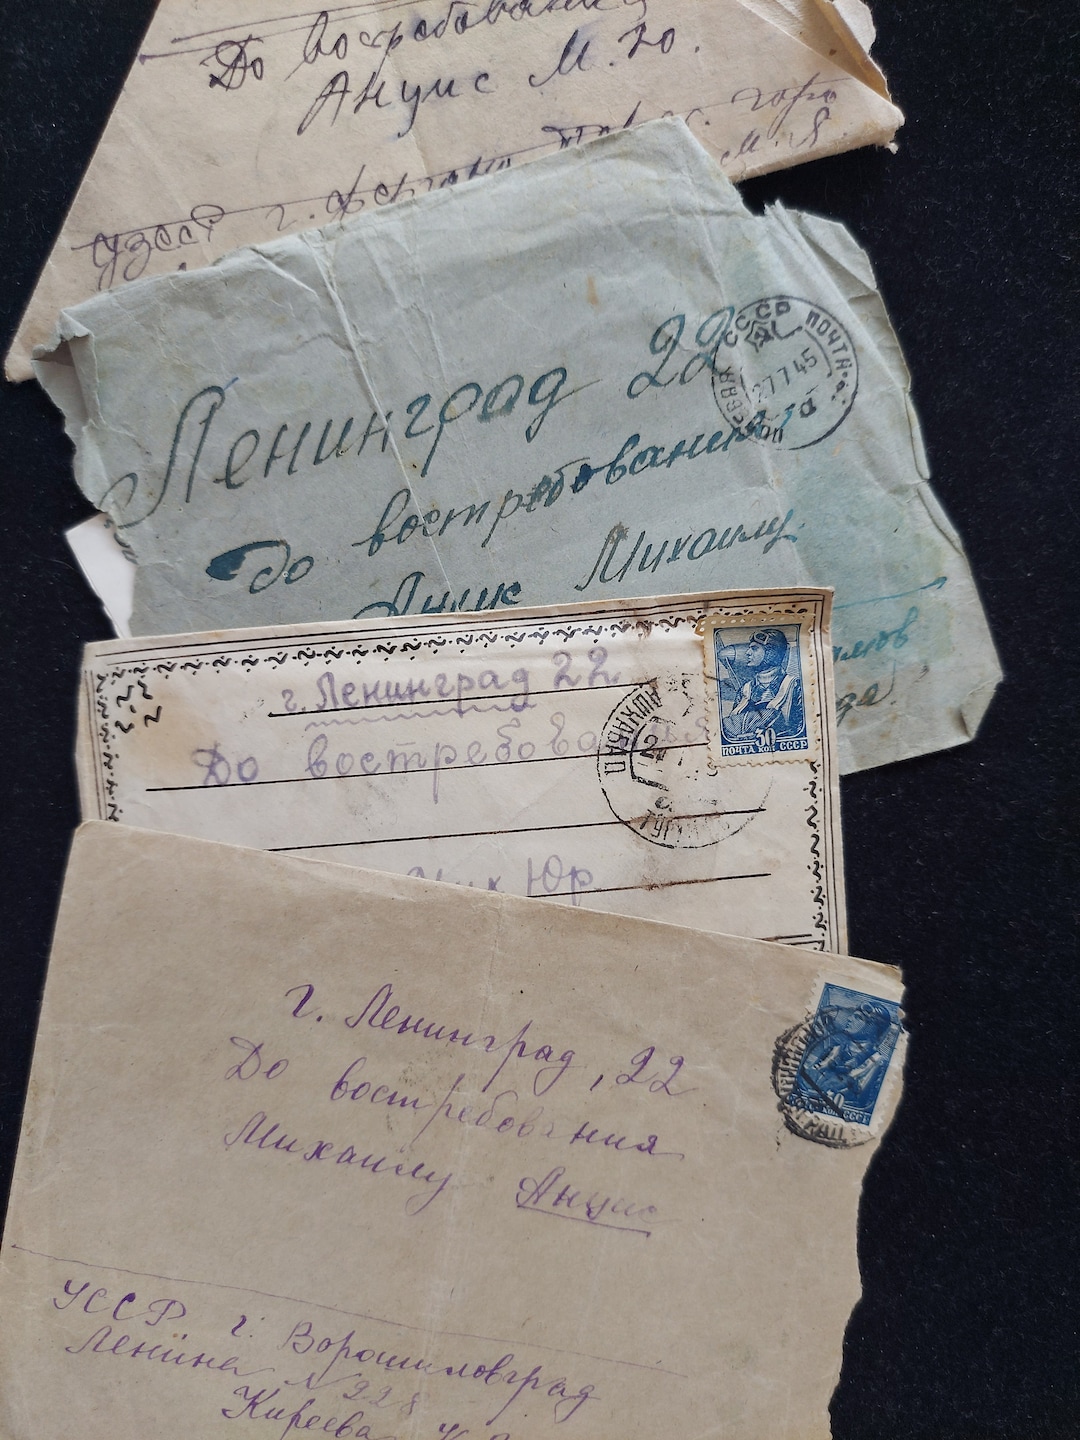 До востребования
Анцис М. Ю.
УзССР г. Фергана
Ленинград 22
До востребования
Анцис Михаилу
СССР
ПОЧТА
27 7 45
г. Ленинград 22
До востребования
Мих Юр.
30
ПОЧТА КОП СССР
АШХАБАД
г. Ленинград, 22
До востребования
Михаилу Анцис
УССР г. Ворошиловград
Ленина № 228
Киреева